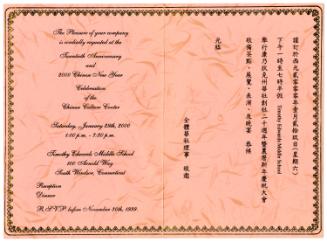 The Pleasure of your company
is cordially requested at the
Twentieth Anniversary
and
2000 Chinese New Year
Celebration
of the
Chinese Culture Center
Saturday, January 29th, 2000
1:30 p.m. - 7:30 p.m.
Timothy Edwards Middle School
100 Arnold Way
South Windsor, Connecticut
Reception
Dinner
R.S.V.P before November 30th, 1999.
謹訂於西元貳零零零年壹月貳拾玖日(星期六)
下午一時至七時半假 Timothy Edwards Middle School
舉行康乃狄克州華社創社二十週年暨農曆新年慶祝大會
敬備茶點、展覽、表演、及晚宴 恭候
光臨
全體華社理事 敬邀